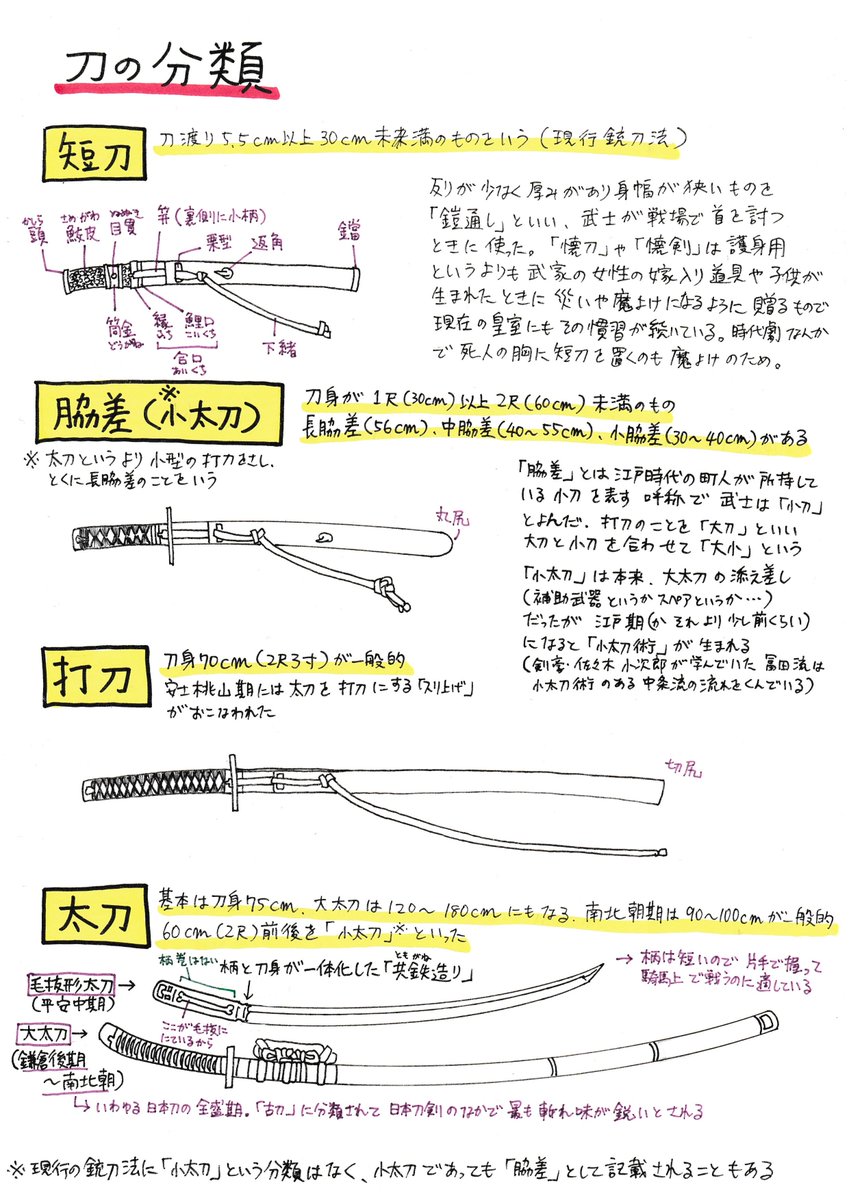 刀の分類
短刀
刀渡り5.5cm以上30cm未来満のものという(現行銃刀法)
反りが少なく厚みがあり身幅が狭いものを
「鎧通し」といい、武士が戦場で首を討つ
ときに使った。「懐刀」や「懐剣」は護身用
というよりも武家の女性の嫁入り道具や子供が
生まれたときに災いや魔よけになるように贈るもので
現在の皇室にもその慣習が続いている。時代劇なんか
で死人の胸に短刀を置くのも魔よけのため。
かしら
頭
さめがわ
鮫皮
目貫
笄(裏側に小柄)
栗型
返角
鐺
筒金
どうがね
縁
ふち
鯉口
こいくち
合口
あいくち
下緒
脇差(※小太刀)
刀身が1尺(30cm)以上2尺(60cm)未満のもの
長脇差(56cm)、中脇差(40～55cm)、小脇差(30～40cm)がある
※太刀というより小型の打刀をさし、
とくに長脇差のことをいう
丸尻
「脇差」とは江戸時代の町人が所持して
いる小刀を表す呼称で武士は「小刀」
とよんだ。打刀のことを「大刀」といい
大刀と小刀を合わせて「大小」という
「小太刀」は本来、大太刀の添え差し
(補助武器というかスペアというか…)
だったが江戸期(かそれより少し前くらい)
になると「小太刀術」が生まれる
(剣客・佐々木小次郎が学んでいた冨田流は
小太刀術のある中条流の流れをくんでいる)
打刀
刀身70cm(2尺3寸)が一般的
安土桃山期には太刀を打刀にする「スリ上げ」
がおこなわれた
切尻
太刀
基本は刀身75cm、大太刀は120～180cmにもなる、南北朝期は90～100cmが一般的
60cm(2尺)前後を「小太刀」※といった
柄巻はない
柄と刀身が一体化した「共鉄造り」
ともがね
→柄は短いので片手で握って
騎馬上で戦うのに適している
毛抜形太刀→
(平安中期)
ここが毛抜に
にているから
大太刀→
(鎌倉後期
～南北朝)
→いわゆる日本刀の全盛期。「古刀」に分類されて日本刀剣のなかで最も斬れ味が鋭いとされる
※現行の銃刀法に「小太刀」という分類はなく、小太刀であっても「脇差」として記載されることもある